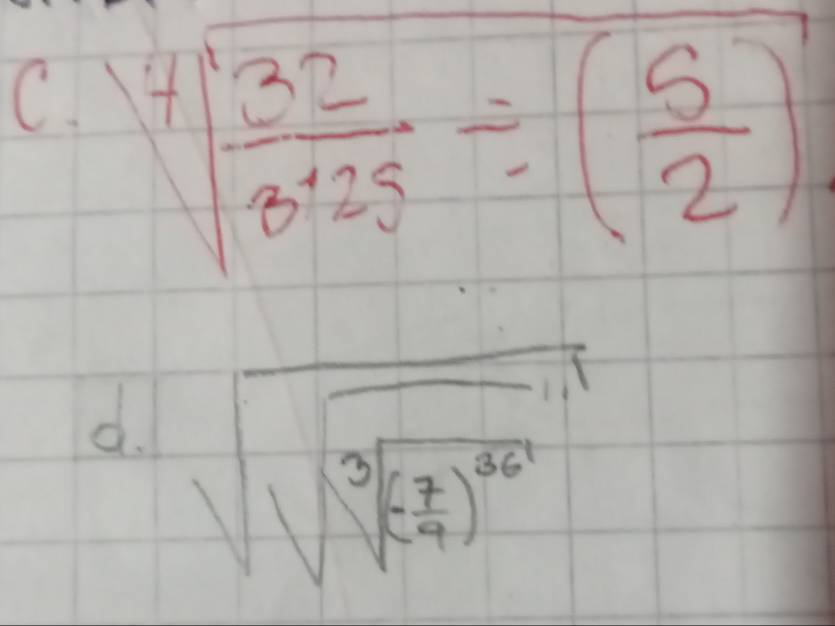 c. ∜(32/3125 ÷ (5/2))
d. √(√(∛((-7/9)^36)))